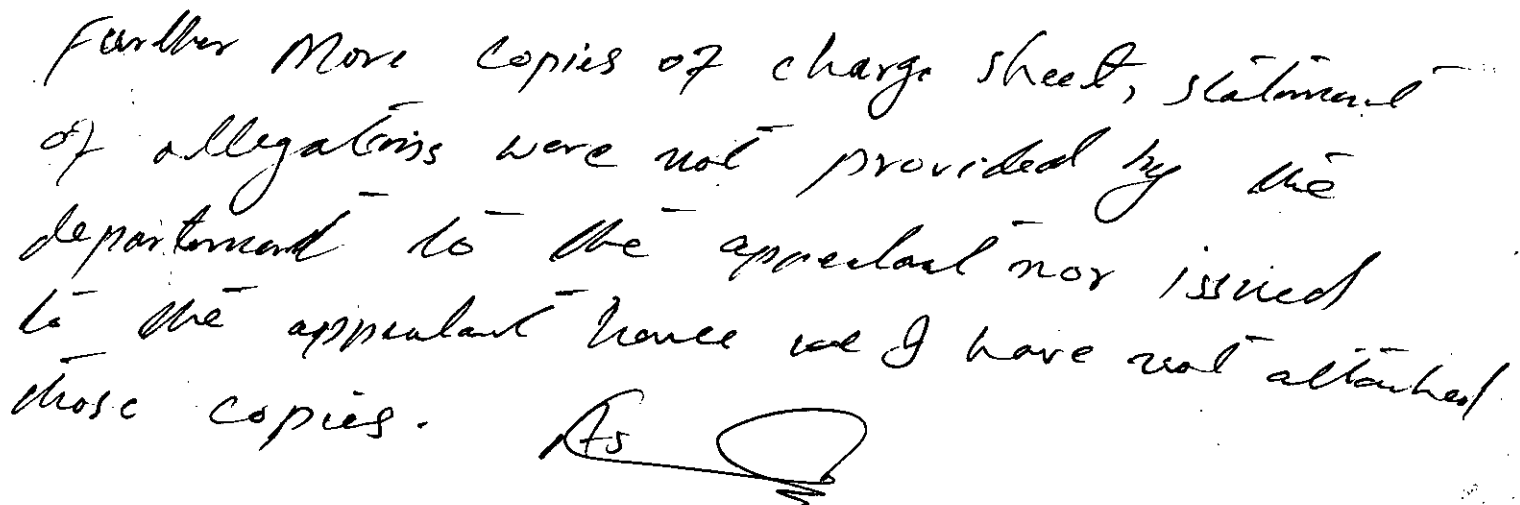 Further More copies of charge sheet, statement
of allegations were not provided by the
department to the appealant nor issued
to the appealant hence we I have not attached
those copies.